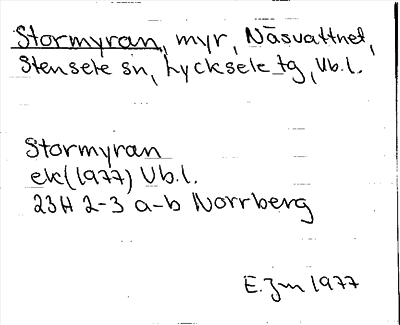 Stormyran, myr, Näsvattnet,
Stensele sn, Lycksele tg, Vb.l.
Stormyran
ek(1977) Vb.l.
23H 2-3 a-b Norrberg
E.Jm 1977